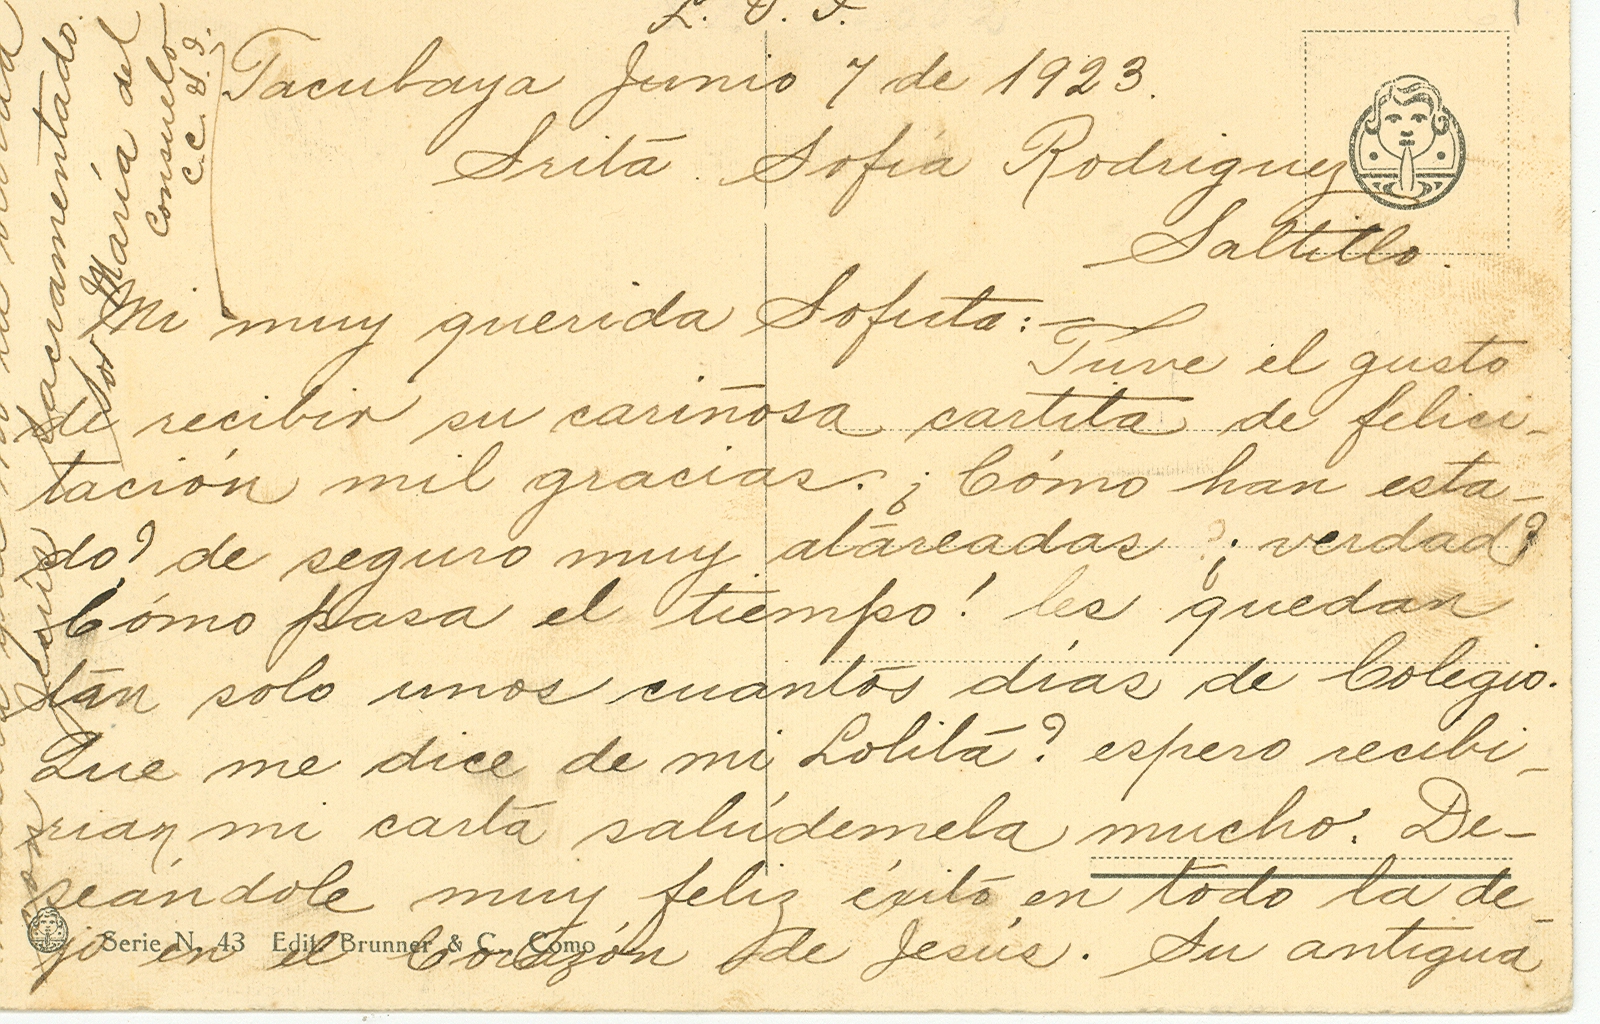 L. V. J.
Tacubaya Junio 7 de 1923.
Sritā. Sofía Rodriguez
Saltillo.
Mi muy querida Sofiita:—
Tuve el gusto
de recibir su cariñosa cartita de felici-
tación mil gracias. ¿Cómo han esta-
do? de seguro muy atareadas ¿verdad?
Cómo pasa el tiempo! les quedan
tan solo unos cuantos días de Colegio.
Que me dice de mi Lolita? espero recibi-
rian mi carta salúdemela mucho. De-
seándole muy feliz éxito en todo la de-
jo en el Corazón de Jesús. Su antigua
que no la olvida
Jesús Sacramentado.
Sor María del
Consuelo
C.C. V. I.
Serie N. 43 Edit. Brunner & C., Como